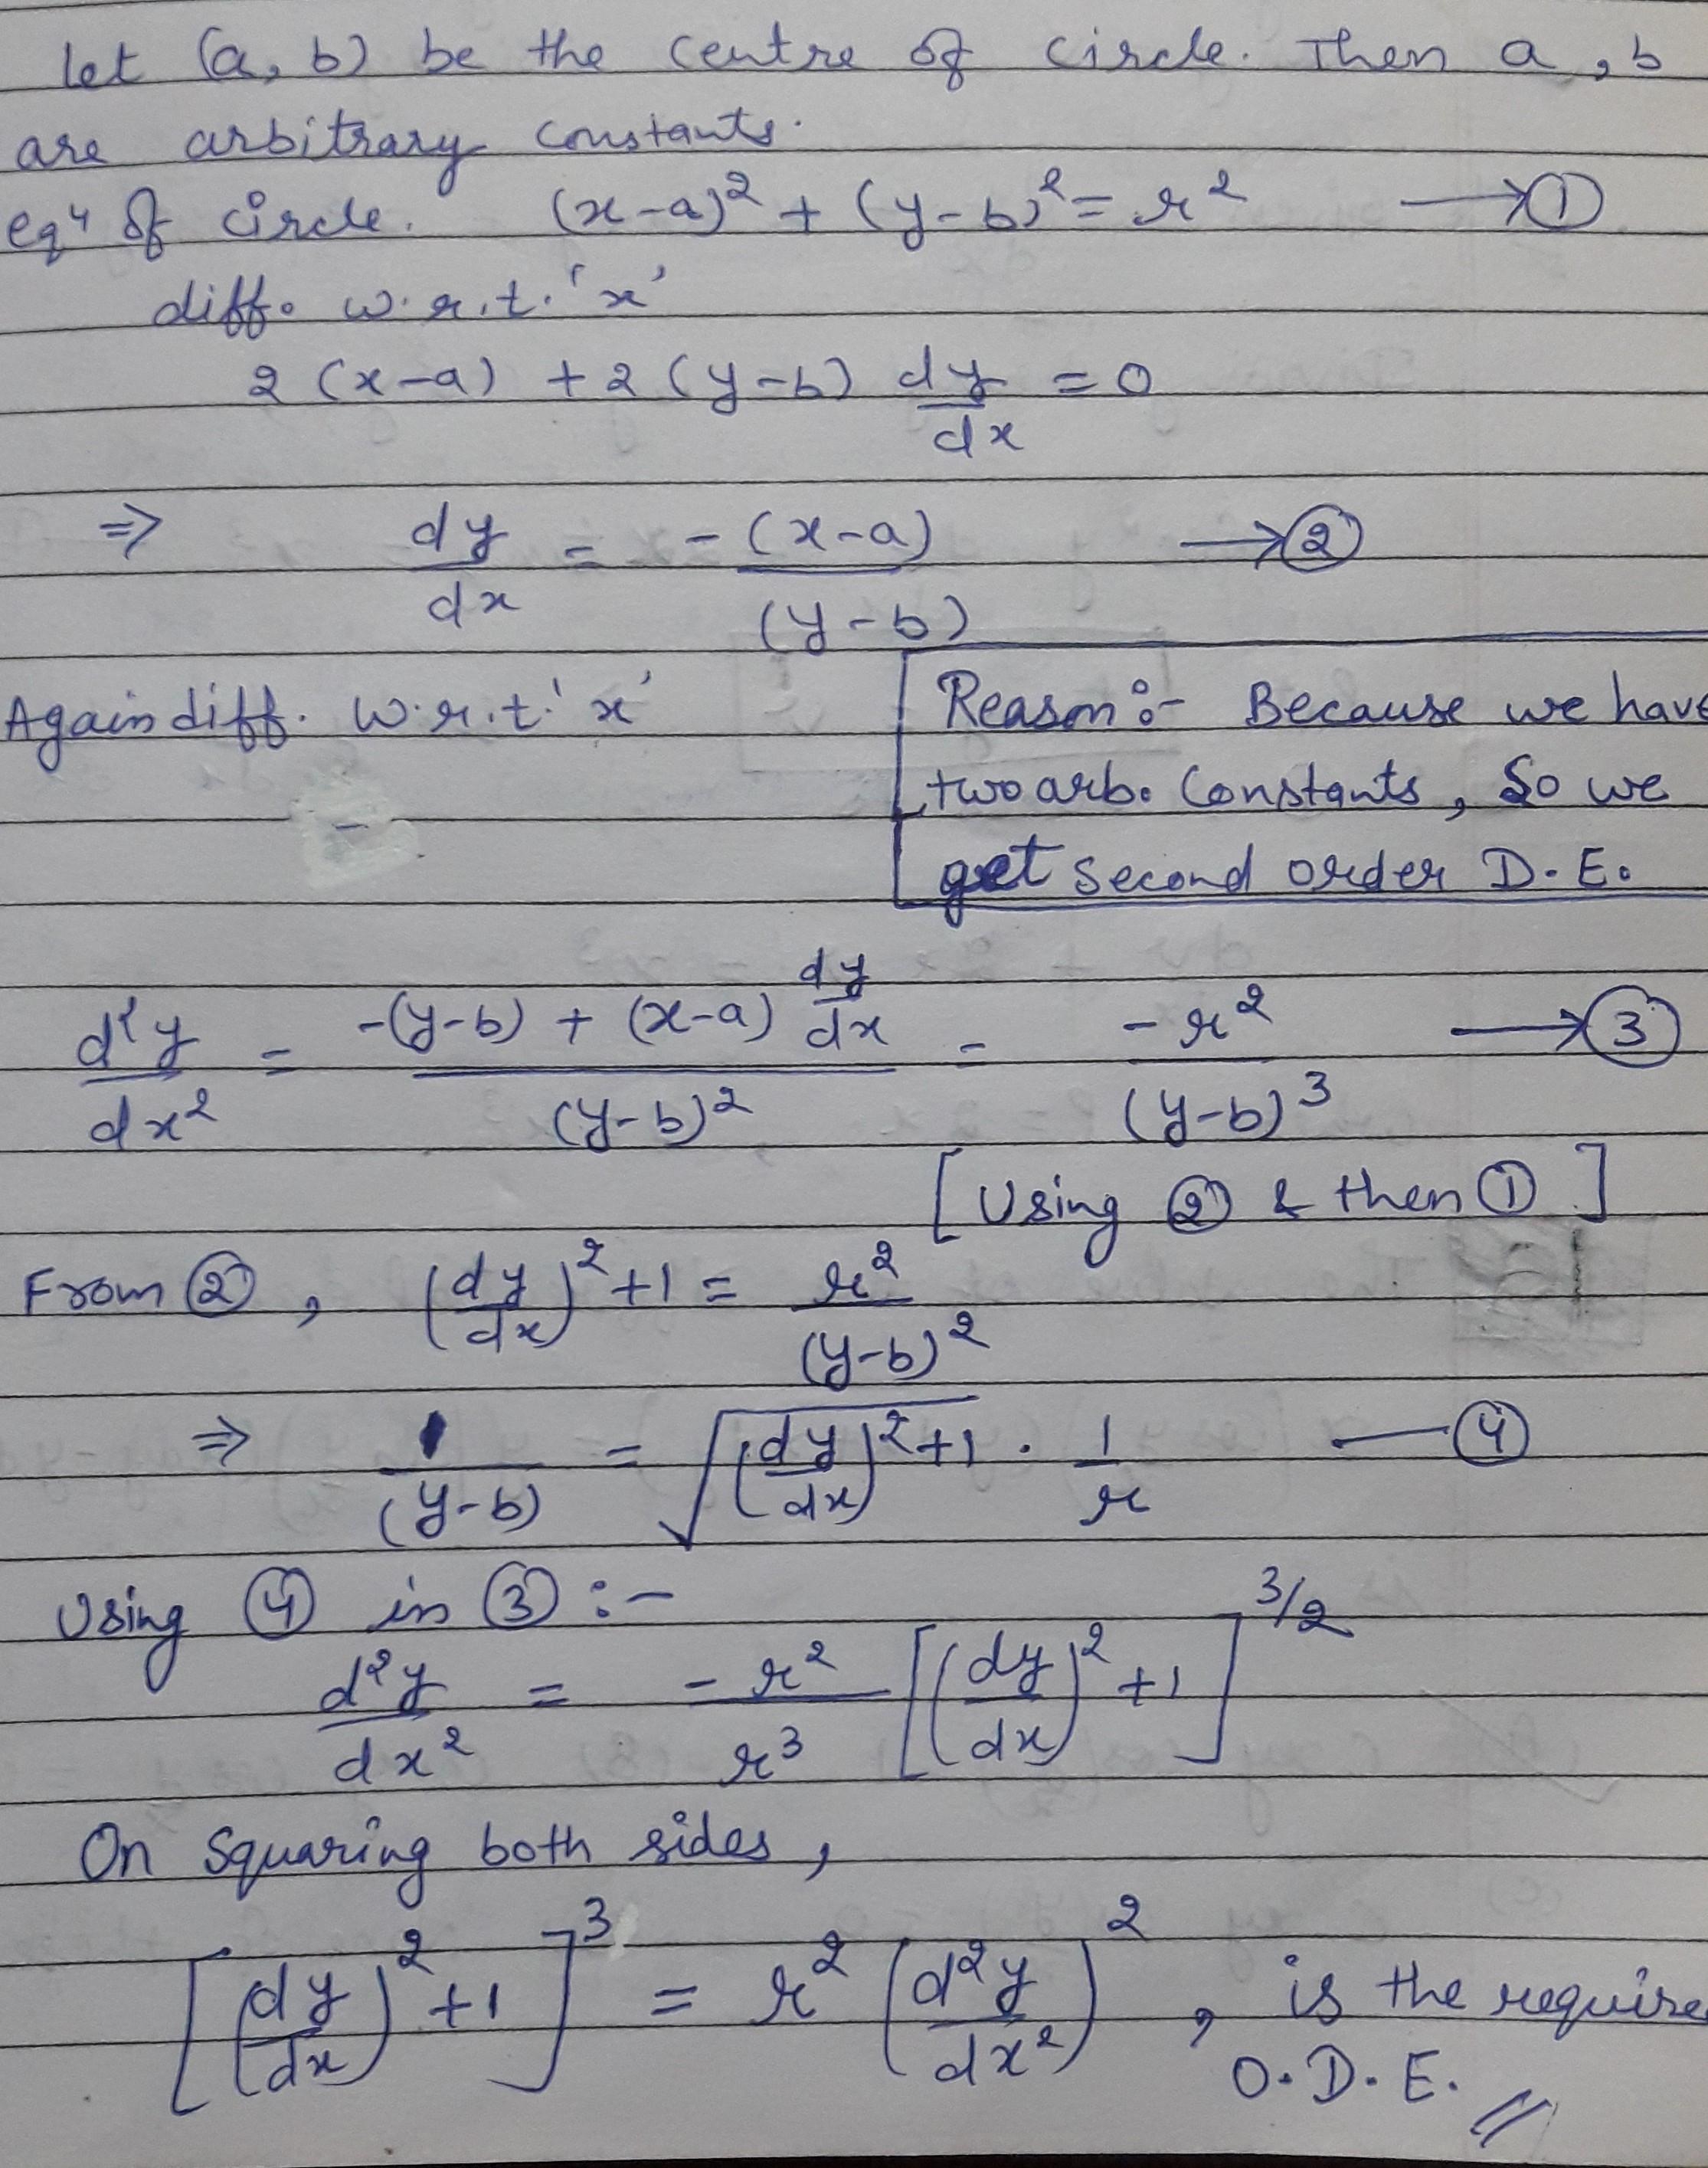 Let (a, b) be the centre of circle. Then a, b
are arbitrary constants.
eqⁿ of circle. (x-a)² + (y-b)² = r² → ①
diff. w.r.t. 'x'
2(x-a) + 2(y-b) dy/dx = 0
⇒ dy/dx = -(x-a)/(y-b) → ②
Again diff. w.r.t. 'x'
Reason :- Because we have
two arb. Constants, So we
get second order D.E.
d²y/dx² = (-(y-b) + (x-a) dy/dx)/(y-b)² = -r²/(y-b)³ → ③
[Using ② & then ①]
From ②, (dy/dx)² + 1 = r²/(y-b)²
⇒ 1/(y-b) = √((dy/dx)² + 1) · 1/r — ④
Using ④ in ③ :-
d²y/dx² = -r²/r³ [(dy/dx)² + 1]^3/2
On Squaring both sides,
[(dy/dx)² + 1]³ = r² (d²y/dx²)², is the require
O.D.E. //